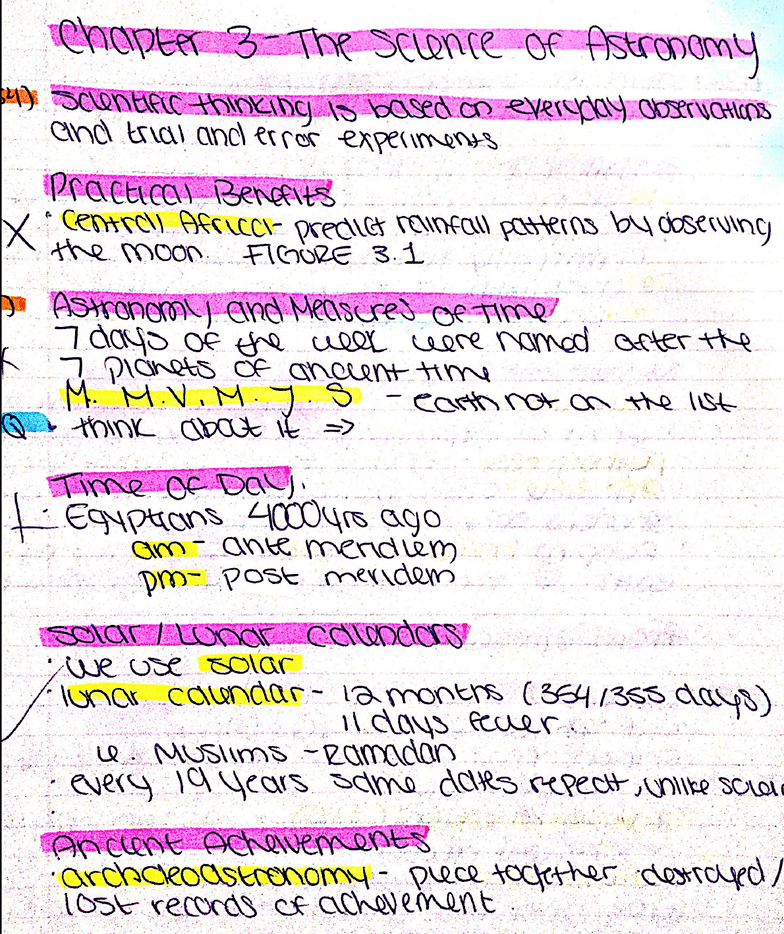 Chapter 3 - The Science of Astronomy
54) Scientific thinking is based on everyday observations
and trial and error experiments
Practical Benefits
· Central Africa - predict rainfall patterns by observing
X the moon. FIGURE 3.1
Astronomy and Measures of Time
7 days of the week were named after the
7 planets of ancient time
M. M. V. M. J. S - earth not on the list
Q · think about it ⇒
Time of Day.
· Egyptians 4000 yrs ago
am - ante meridiem
pm - post meridem
Solar / Lunar Calendars
· We use solar
· lunar calendar - 12 months (354/355 days)
11 days fewer.
i.e. Muslims - Ramadan
· every 19 years same dates repeat, unlike solar
Ancient Acheivements
· archaeoastronomy - piece together destroyed /
lost records of achevement.